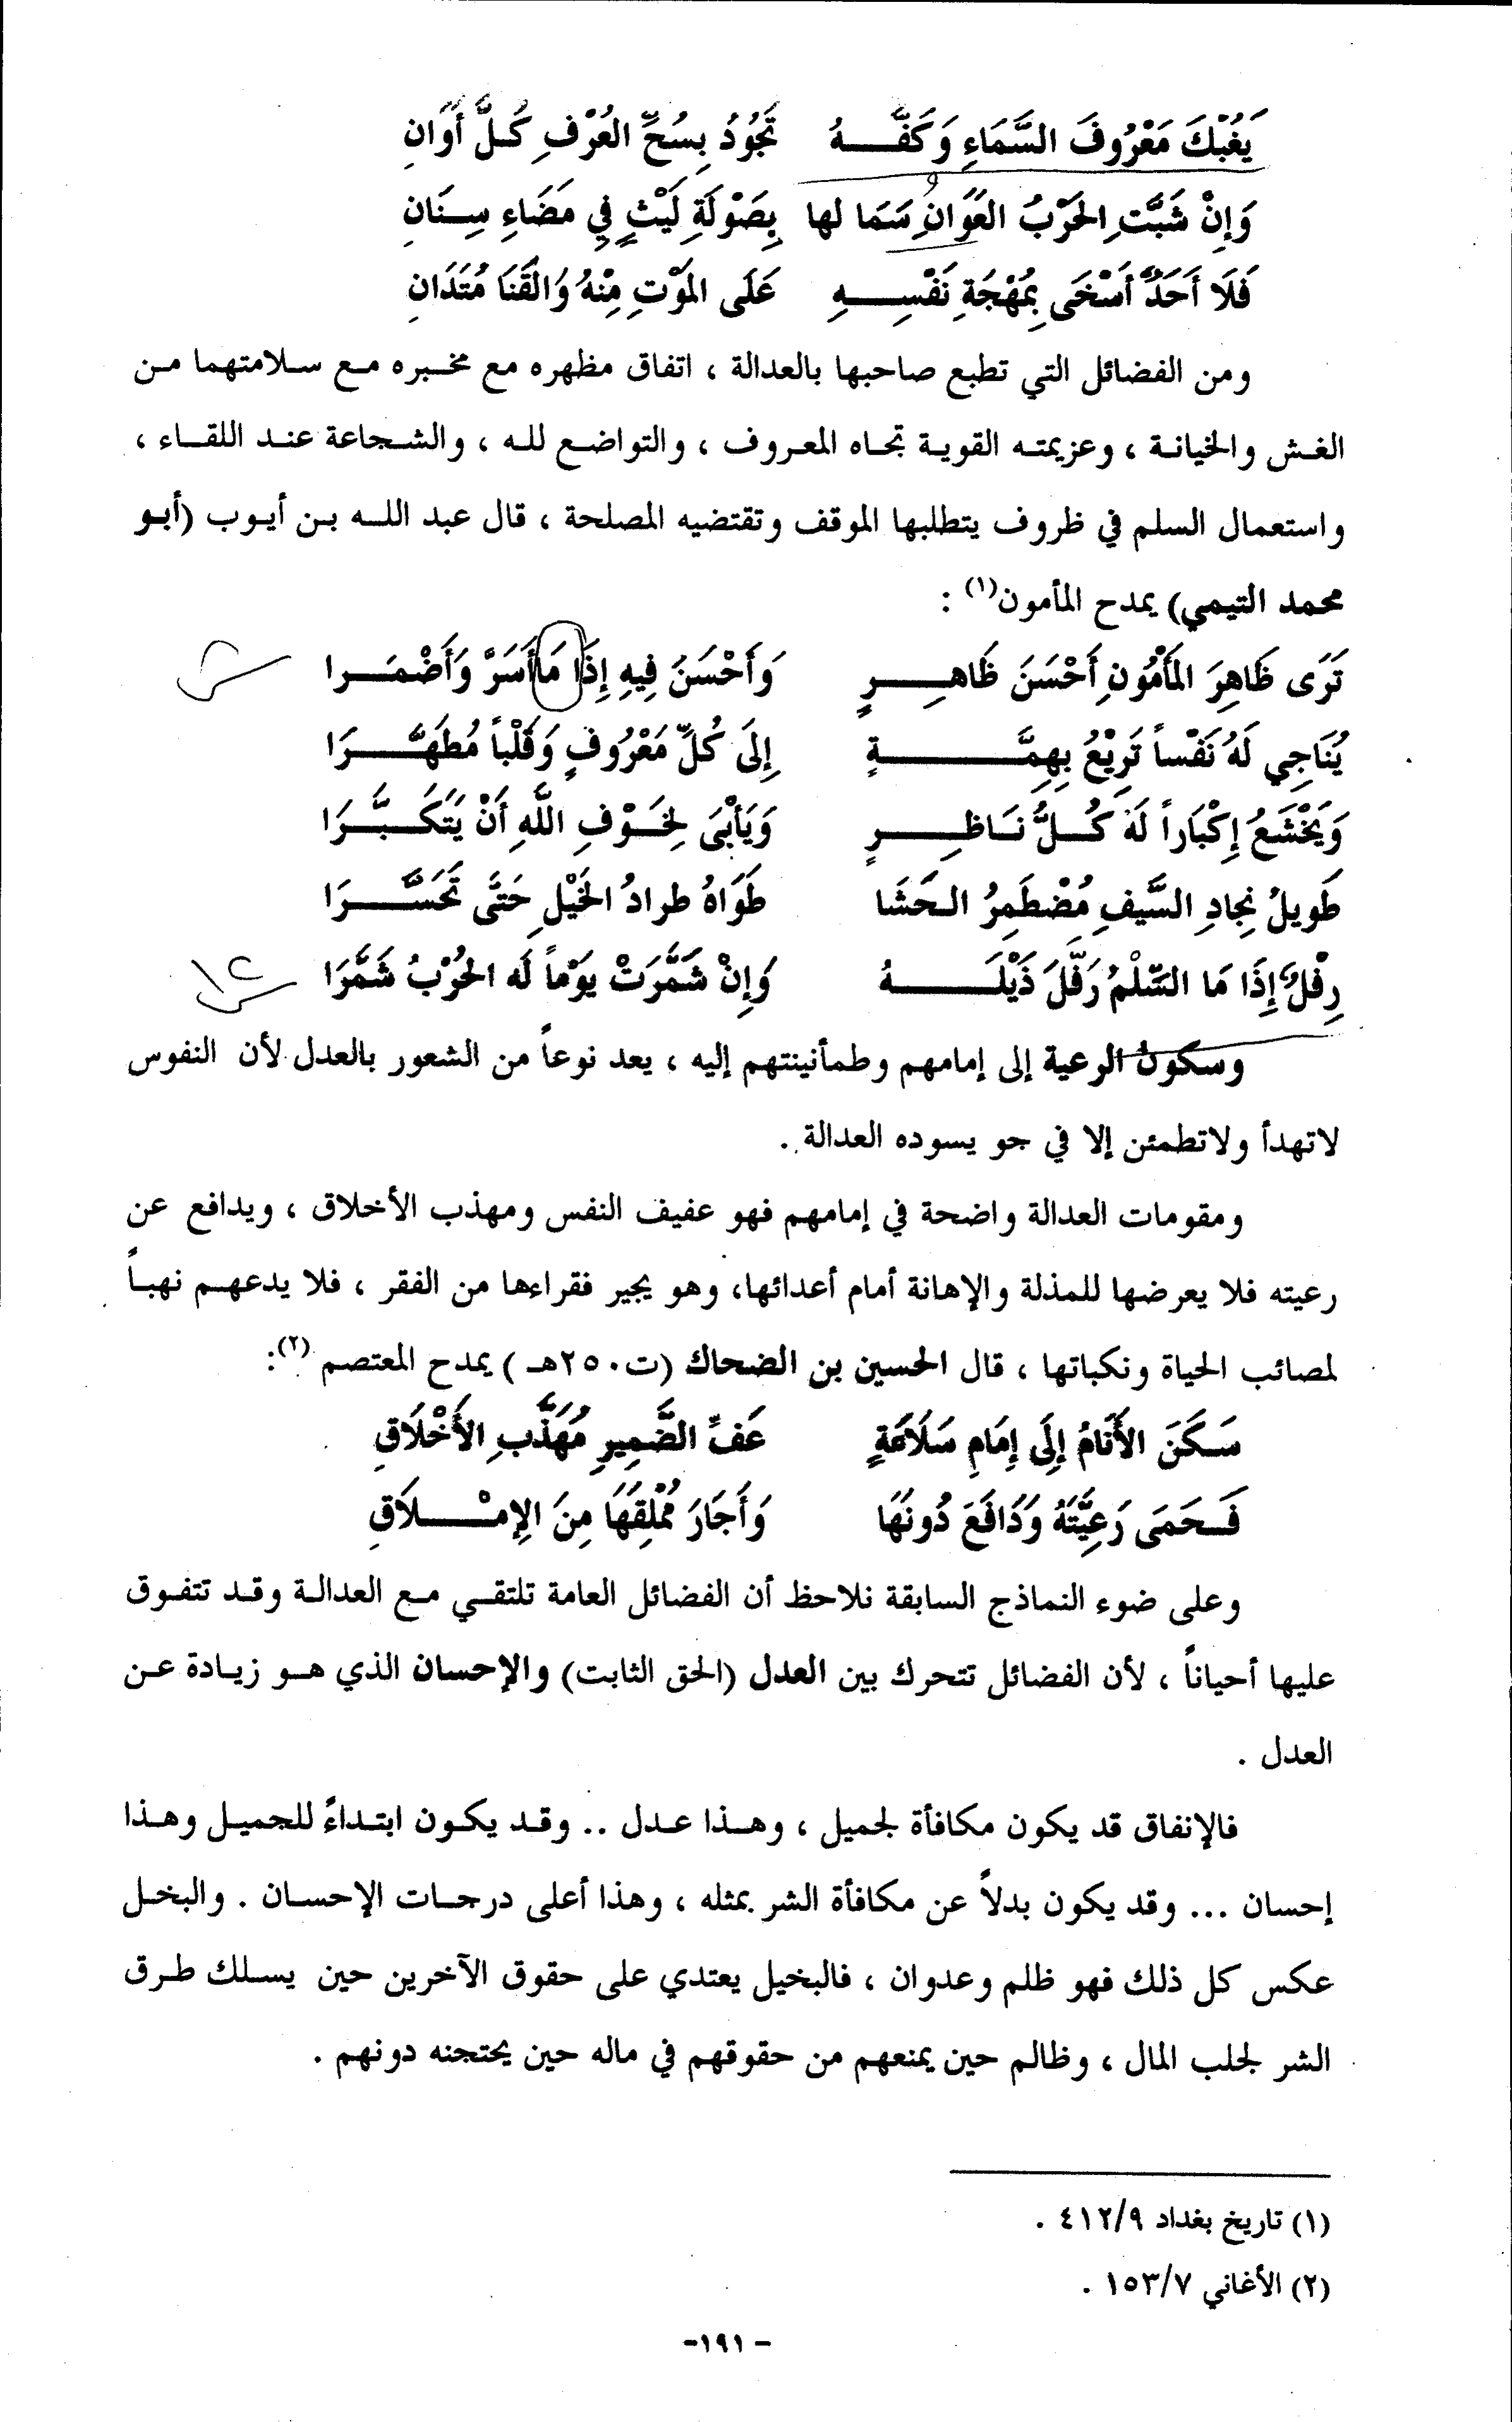 يَغُبْكَ مَعْرُوفَ السَّمَاءِ وَكَفَّـــهُ تَجُودُ بِسُحِّ العُرْفِ كُلَّ أَوَانِ
وَإِنْ شَبَّتِ الحَرْبُ العَوَانُ سَمَا لها بِصَوْلَةِ لَيْثٍ فِي مَضَاءِ سِـنَانِ
فَلَا أَحَدٌ أَسْخَى بِمُهْجَةِ نَفْسِــــهِ عَلَى المَوْتِ مِنْهُ وَالْقَنَا مُتَدَانِ
ومن الفضائل التي تطبع صاحبها بالعدالة ، اتفاق مظهره مع مخـبره مـع سـلامتهما مـن
الغـش والخيانـة ، وعزيمتـه القويـة تجـاه المعـروف ، والتواضـع للـه ، والشـجاعة عنـد اللقـاء ،
واستعمال السلم في ظروف يتطلبها الموقف وتقتضيه المصلحة ، قال عبد اللـه بـن أيـوب (أبـو
محمد التيمي) يمدح المأمون(١) :
تَرَى ظَاهِرَ المَأْمُونِ أَحْسَنَ ظَاهِــــرٍ وَأَحْسَنَ فِيهِ إِذَا مَا أَسَرَّ وَأَضْمَـــرا
يُنَاجِي لَهُ نَفْساً تَرِيْعُ بِهِمَّــــــــةٍ إِلَى كُلِّ مَعْرُوفٍ وَقَلْباً مُطَهَّـــــرَا
وَيَخْشَعُ إِكْبَاراً لَهُ كُـــلُّ نَـاظِــــرٍ وَيَأْبَى لِخَـوْفِ اللَّهِ أَنْ يَتَكَـــبَّـــرَا
طَويلُ نِجادِ السَّيفِ مُضْطَمِرُ الـحَشَا طَوَاهُ طرادُ الخَيْلِ حَتَّى تَحَسَّـــــرَا
رِفْلٌ إِذَا مَا السِّلْمُ رَفَّلَ ذَيْلَـــــــهُ وَإِنْ شَمَّرَتْ يَوْماً لَه الحُرْبُ شَمَّرَا
وسكون الرعية إلى إمامهم وطمأنينتهم إليه ، يعد نوعاً من الشعور بالعدل لأن النفوس
لاتهدأ ولاتطمئن إلا في جو يسوده العدالة .
ومقومات العدالة واضحة في إمامهم فهو عفيف النفس ومهذب الأخلاق ، ويدافع عن
رعيته فلا يعرضها للمذلة والإهانة أمام أعدائها، وهو يجير فقراءها من الفقر ، فلا يدعهـم نهبـاً
لمصائب الحياة ونكباتها ، قال الحسين بن الضحاك (ت٢٥٠هـ) يمدح المعتصم (٢):
سَـكَنَ الأَنَامُ إِلَى إِمَامِ سَلَامَةٍ عَفِّ الضَّمِيرِ مُهَذَّبِ الأَخْلَاقِ
فَـحَمَى رَعِيَّتَهُ وَدَافَعَ دُونَهَا وَأَجَارَ مُمْلِقَهَا مِنَ الإِمْــــلَاقِ
وعلى ضوء النماذج السابقة نلاحظ أن الفضائل العامة تلتقـي مـع العدالـة وقـد تتفـوق
عليها أحياناً ، لأن الفضائل تتحرك بين العدل (الحق الثابت) والإحسان الذي هـو زيـادة عـن
العدل .
فالإنفاق قد يكون مكافأة لجميل ، وهـذا عـدل .. وقـد يكـون ابتـداءً للجميـل وهـذا
إحسان ... وقد يكون بدلاً عن مكافأة الشر بمثله ، وهذا أعلى درجـات الإحسـان . والبخـل
عكس كل ذلك فهو ظلم وعدوان ، فالبخيل يعتدي على حقوق الآخرين حين يسـلك طـرق
الشر لجلب المال ، وظالم حين يمنعهم من حقوقهم في ماله حين يحتجنه دونهم .
(١) تاريخ بغداد ٤١٢/٩ .
(٢) الأغاني ١٥٣/٧ .
- ١٩١-